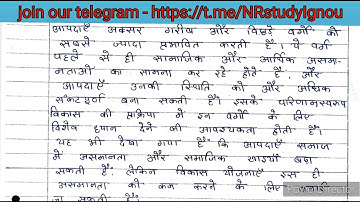 join our telegram - https://t.me/NRstudyIgnou
आपदाएँ अक्सर गरीब और पिछड़े वर्गों को
सबसे ज्यादा प्रभावित करती हैं। ये वर्ग
पहले से ही सामाजिक और आर्थिक असमा-
नताओं का सामना कर रहे होते हैं, और
आपदाएँ उनकी स्थिति को और अधिक
संकटपूर्ण बना सकती हैं। इसके परिणामस्वरूप
विकास की प्रक्रिया में इन वर्गों के लिए
विशेष ध्यान देने की आवश्यकता होती है।
यह भी देखा गया है कि आपदाएँ समाज
में असमानता और सामाजिक खाइयाँ बढ़ा
सकती हैं। लेकिन विकास योजनाएँ इस ही
असमानता को कम करने के लिए बनाई
जा सकती हैं।